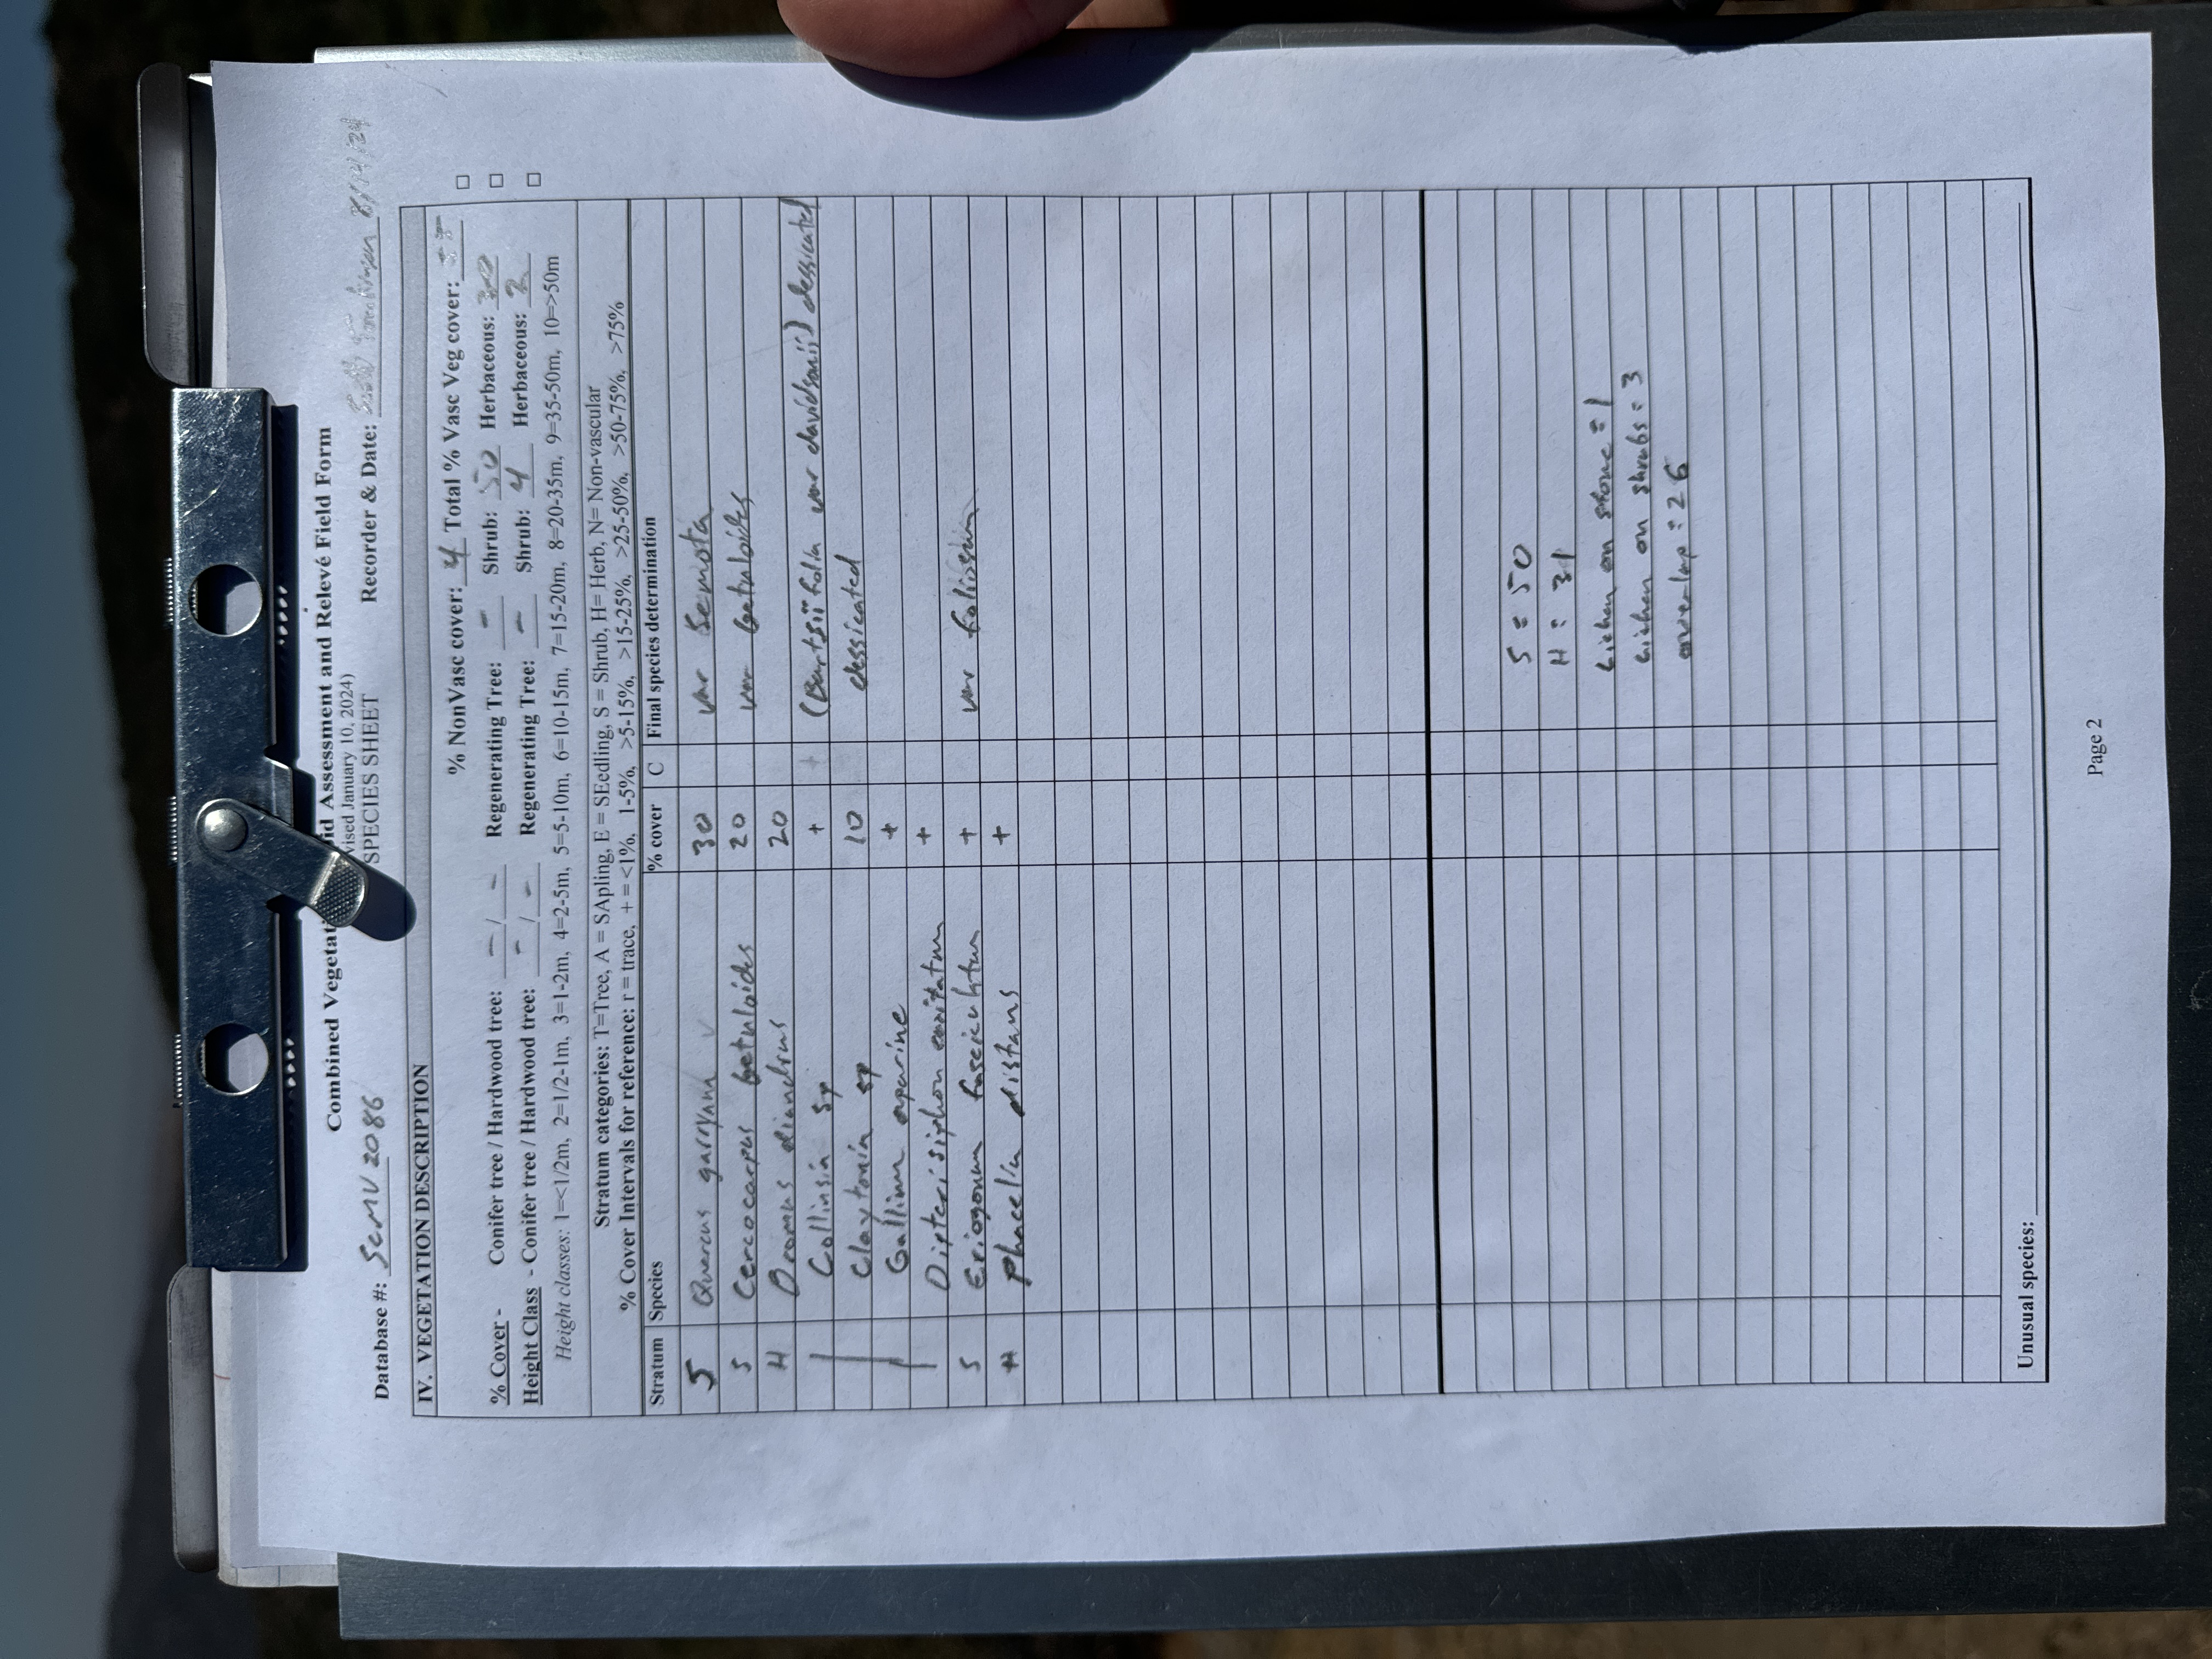 Combined Vegetat id Assessment and Relevé Field Form
vised January 10, 2024)
SPECIES SHEET
Database #: SCMV 2086 Recorder & Date: 8/14/24
IV. VEGETATION DESCRIPTION
% NonVasc cover: 4 Total % Vasc Veg cover:
% Cover - Conifer tree / Hardwood tree: - / - Regenerating Tree: - Shrub: 50 Herbaceous: 30
Height Class - Conifer tree / Hardwood tree: - / - Regenerating Tree: - Shrub: 4 Herbaceous: 2
Height classes: 1=<1/2m, 2=1/2-1m, 3=1-2m, 4=2-5m, 5=5-10m, 6=10-15m, 7=15-20m, 8=20-35m, 9=35-50m, 10=>50m
Stratum categories: T=Tree, A = SApling, E = SEedling, S = Shrub, H= Herb, N= Non-vascular
% Cover Intervals for reference: r = trace, + = <1%, 1-5%, >5-15%, >15-25%, >25-50%, >50-75%, >75%
Stratum Species % cover C Final species determination
S Quercus garryana v 30 var semota
S Cercocarpus betuloides 20 var betuloides
H Bromus diandrus 20
Collinsia sp + + (bartsiifolia var davidsonii) dessicated
Claytonia sp 10 dessicated
Gallium aparine +
Dipterisiphon +
S Eriogonum fasciculatum + var foliosum
H Phacelia distans +
S = 50
H = 31
Lichen on stone = 1
Lichen on shrubs = 3
overlap = 26
Unusual species:
Page 2